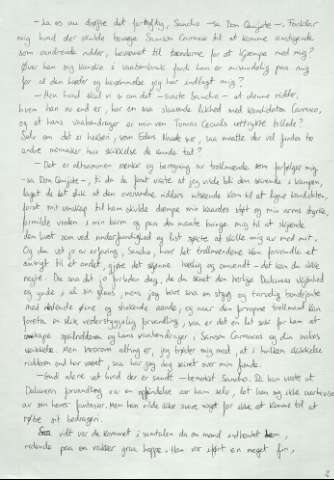 - La oss nu drøfte det fortrolig, Sancho - sa Don Quijote -. Forklar
mig hvad der skulde bevæge Sansón Carrasco til at komme
som vandrende ridder, bevæbnet til tænderne for at kjæmpe med mig?
Øver han sig kanske i vaabenbruk fordi han er misundelig paa mig
for al den hæder og berømmelse jeg har indlagt mig?
- Men hvad skal vi si om det - svarte Sancho - at denne ridder,
hvem han nu end er, har en saa slaaende likhed med kandidaten Carrasco,
og at hans vaabendrager er min ven Tomas Cecials utrykte billede?
Selv om det er hekseri, som Eders Naade sier, saa maatte der vel findes to
andre mennesker hvis skikkelse de kunde ta?
- Det er altsammen renker og beregning av troldmændene som forfølger mig
- sa Don Quijote -, ti da de forut visste at jeg vilde bli den seirende i kampen,
laget de det slik at den overvundne ridders utseende kom til at ligne kandidaten,
forat mit venskap til ham skulde dæmpe mit sværdes og min arms styrke,
formilde vreden i min barm og paa den maate berge mig til at skjende
den livet som ved underfundighet og list søkte at skille mig av med mit.
Og du vet jo av erfaring, Sancho, hvor let troldmændene kan forvandle et
ansigt til et andet, gjøre det skjønne hæslig og omvendt - det kan du ikke
negte. Du saa det jo forleden dag, da du skuet den herlige Dulcineas skjønhed
og ynde i al sin glans, mens jeg bare saa en styg og tarvelig bondejente
med rindende øine og stinkende aande, og naar den forvorpne troldmand kan
foreta en slik vederstyggelig forvandling, saa er det en let sak for ham at
omskape speilridderen og hans vaabendrager i Sansón Carrascos og din nabos
skikkelse. Men hvorom alting er, jeg trøster mig med, at i hvilken skikkelse
ridderen nu har været, saa har jeg dog seiret over min fiende.
- Gud alene vet hvad der er sandt - bemerket Sancho. Da han visste at
Dulcineas forvandling var en opfindelse av ham selv, lot han sig ikke overbevise
av sin herres fantasier. Men han vilde ikke svare noget for ikke at komme til at
røbe sit bedrageri.
Saa vidt var de kommet i samtalen da en mand indhentet dem,
ridende paa en vakker graa hoppe. Han var iført en meget fin,
2